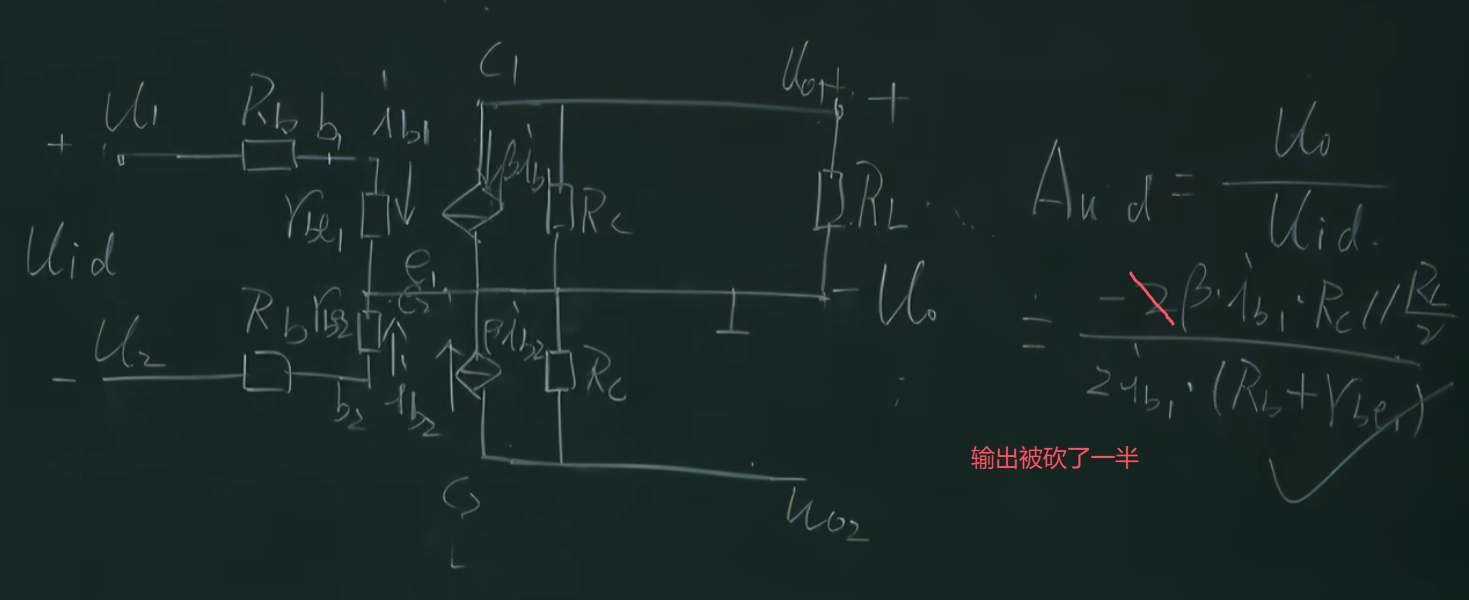 C1
Uo1 +
+ U1 Rb b1 ib1
βib1 RC
rbe1
RL
Uid
e1
e2
- Uo
Rb rbe2
- U2
βib2 RC
b2 ib2
C2
Uo2
Aud = Uo / Uid
= -2β·ib1·RC // RL/2 / 2ib1·(Rb+rbe1)
输出被砍了一半